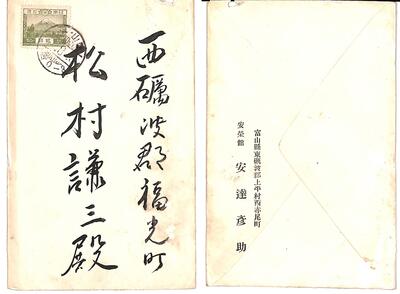 西礪波郡福光町
松村謙三殿
富山縣東礪波郡上平村西赤尾町
安榮館
安達彦助